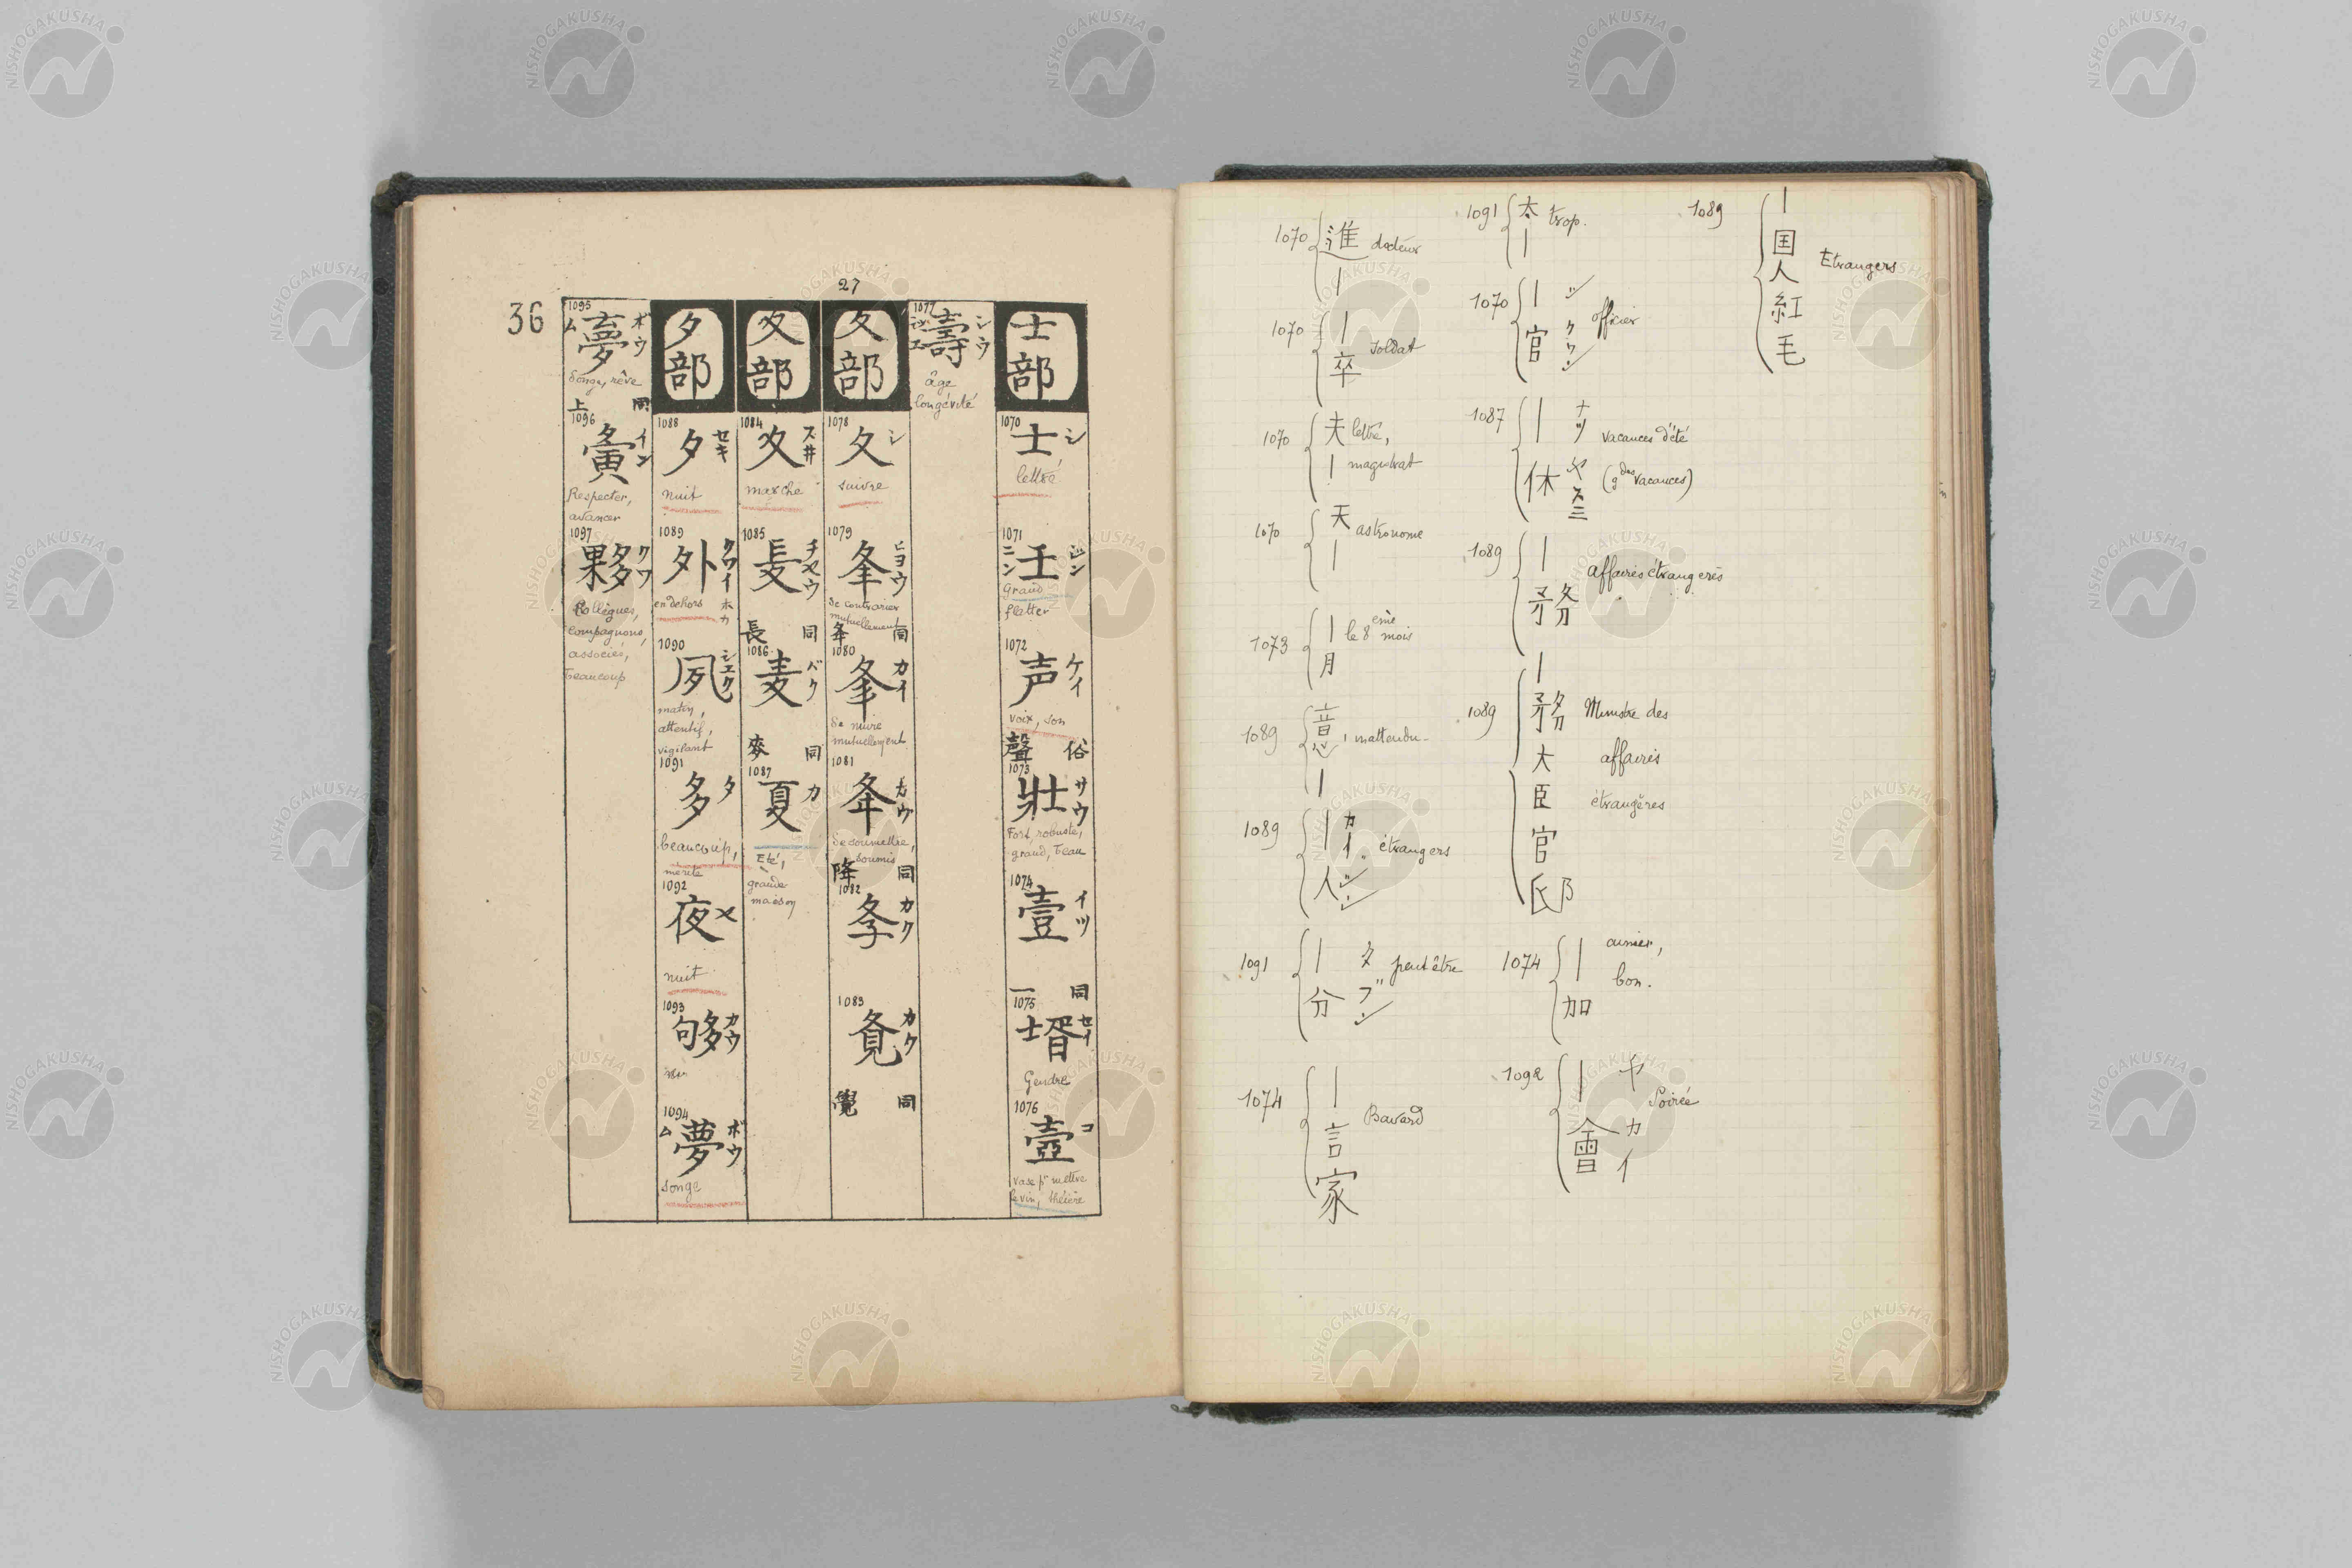 27
36
士部
1070
士 シ
lettré
1071
壬 ジン
ニン
Grand
flatter
1072
声 ケイ
voix, son
聲 俗
1073
壯 サウ
Fort, robuste,
grand, beau
1074
壹 イツ
一 同
1075
壻 セイ
Gendre
1076
壺 コ
vase pr mettre
le vin, théière
1077
壽 シウ
âge
longévité
夂部
1078
夂 シ
suivre
1079
夆 ヒヨウ
se contrarier
mutuellement
同
1080
夆 カイ
se nuire
mutuellement
1081
夅 カウ
se soumettre,
soumis
降 同
1082
カク
1083
カク
覺 同
夊部
1084
夊 スヰ
marche
1085
镸 チヤウ
長 同
1086
麦 バク
麥 同
1087
夏 カ
Eté,
grande
maison
夕部
1088
夕 セキ
nuit
1089
外 クワイ
ホカ
en dehors
1090
夙 シユク
matin,
attentif,
vigilant
1091
多 タ
beaucoup,
mérite
1092
夜 ヤ
nuit
1093
夠 カウ
1094
夢 ボウ
ム
songe
1095
夢 ボウ
ム
Songe, rêve
上 同
1096
夤 イン
Respecter,
avancer
1097
夥 クワ
Collègues,
compagnons,
associés,
beaucoup
1070 進｜ docteur
1070 ｜卒 soldat
1070 夫｜ lettré,
magistrat
1070 天｜ astronome
1073 ｜月 le 8ème mois
1089 意｜ inattendu
1089 ｜人 カイ ジン étrangers
1091 ｜分 タ ブン peut être
1074 ｜言家 Bavard
1091 太｜ trop.
1070 ｜官 シ クワン officier
1087 ｜休 ナツ ヤスミ vacances d'été
(gdes vacances)
1089 ｜務 affaires étrangères
1089 ｜務大臣官邸 Ministre des
affaires
étrangères
1074 ｜加 aimer,
bon.
1092 ｜會 ヤ カイ Soirée
1089 ｜国人紅毛 Etrangers
NISHOGAKUSHA